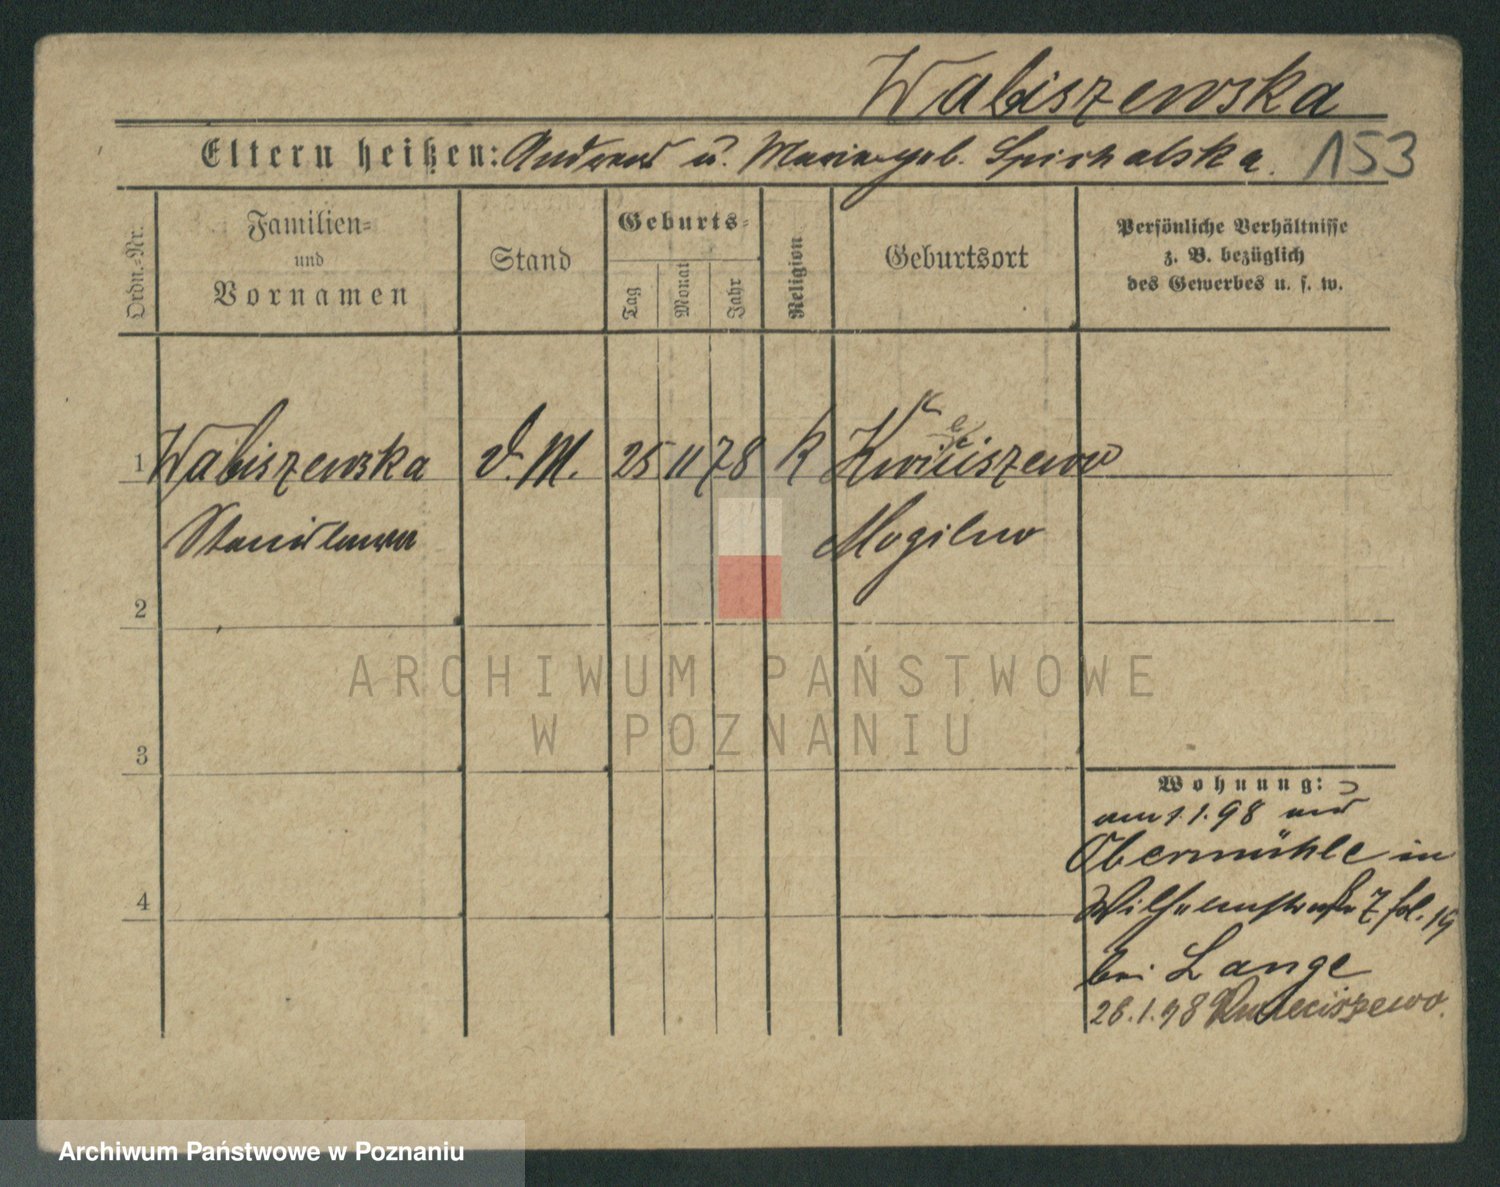 Wabiszewska
Eltern heißen: Andreas u. Maria geb. Spichalska. 153
Ordn.-Nr.
Familien-
und
Vornamen
Stand
Geburts-
Tag
Monat
Jahr
Religion
Geburtsort
Persönliche Verhältnisse
z. B. bezüglich
des Gewerbes u. s. w.
1 Wabiszewska D. M. 25 11 78 K Kwieciszewo
Stanislawa Mogilno
2
3
4
Wohnung:
am 1.1.98 aus
Obermühle in
Wilhelmstraße 7 fol. 19
bei Lange
28.1.98 Kwieciszewo.
ARCHIWUM PAŃSTWOWE
W POZNANIU
Archiwum Państwowe w Poznaniu